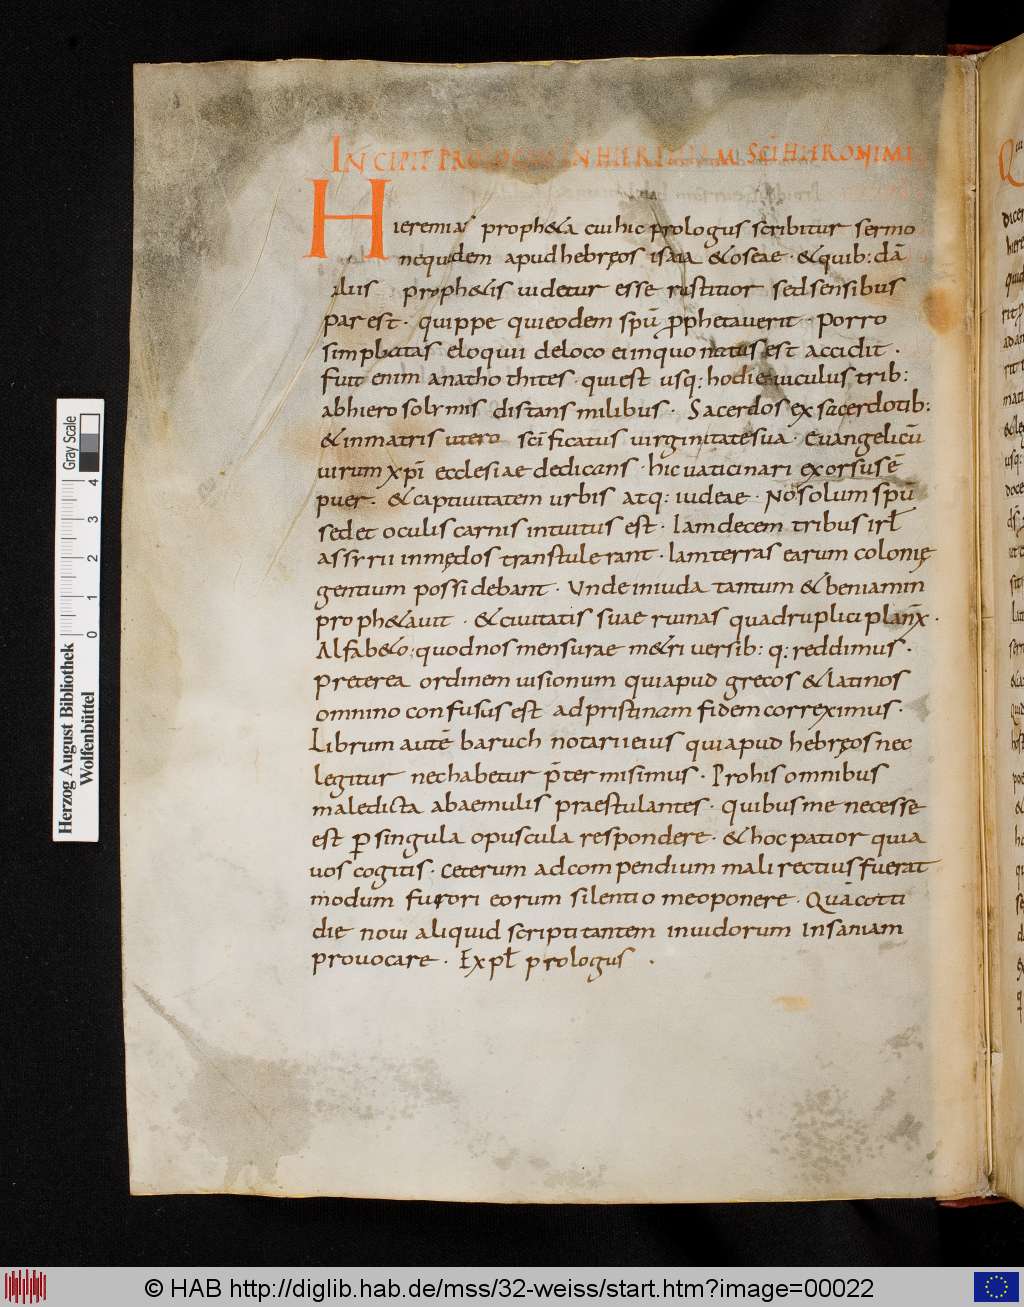 INCIPIT PROLOGUS IN HIEREMIAM SC̄I HIERONIMI
Hieremias propheta cui hic prologus scribitur sermo
nequidem apud hebręos isaia & oseae · & quib: dā
aliis proph&is uidetur esse rustitior sed sensibus
par est · quippe qui eodem spū ꝓphetauerit · Porro
simplicitas eloquii de loco ei in quo natus est accidit ·
fuit enim anathothites · qui est usq: hodie uiculus trib:
ab hierosolymis distans milibus · Sacerdos ex sacerdotib:
& in matris utero scīficatus uirginitate sua · euangelicū
uirum xp̄i ecclesiae dedicans · hic uaticinari exorsus ē
puer · & captiuitatem urbis atq: iudeae · No solum spū
sed et oculis carnis intuitus est · Iam decem tribus irł
assyrii in mędos transtulerant · Iam terras earum colonię
gentium possidebant · Unde in iuda tantum & beniamin
proph&auit · & ciuitatis suae ruinas quadruplici planx̄ ·
Alfab&o: quod nos mensurae m&ri uersib: q: reddimus ·
Preterea ordinem uisionum qui apud grecos & latinos
omnino confusus est ad pristinam fidem correximus ·
Librum autē baruch notarii eius qui apud hebręos nec
legitur nec habetur p̄termisimus · Pro his omnibus
maledicta ab aemulis praestulantes · quibus me necesse
est ꝑ singula opuscula respondere · & hoc patior quia
uos cogitis · Ceterum ad compendium mali rectius fuerat
modum furori eorum silentio meo ponere · Quā cotti
die noui aliquid scriptitantem inuidorum Insaniam
prouocare · Expł prologus ·
Gray Scale
0 1 2 3 4
Herzog August Bibliothek
Wolfenbüttel
© HAB http://diglib.hab.de/mss/32-weiss/start.htm?image=00022